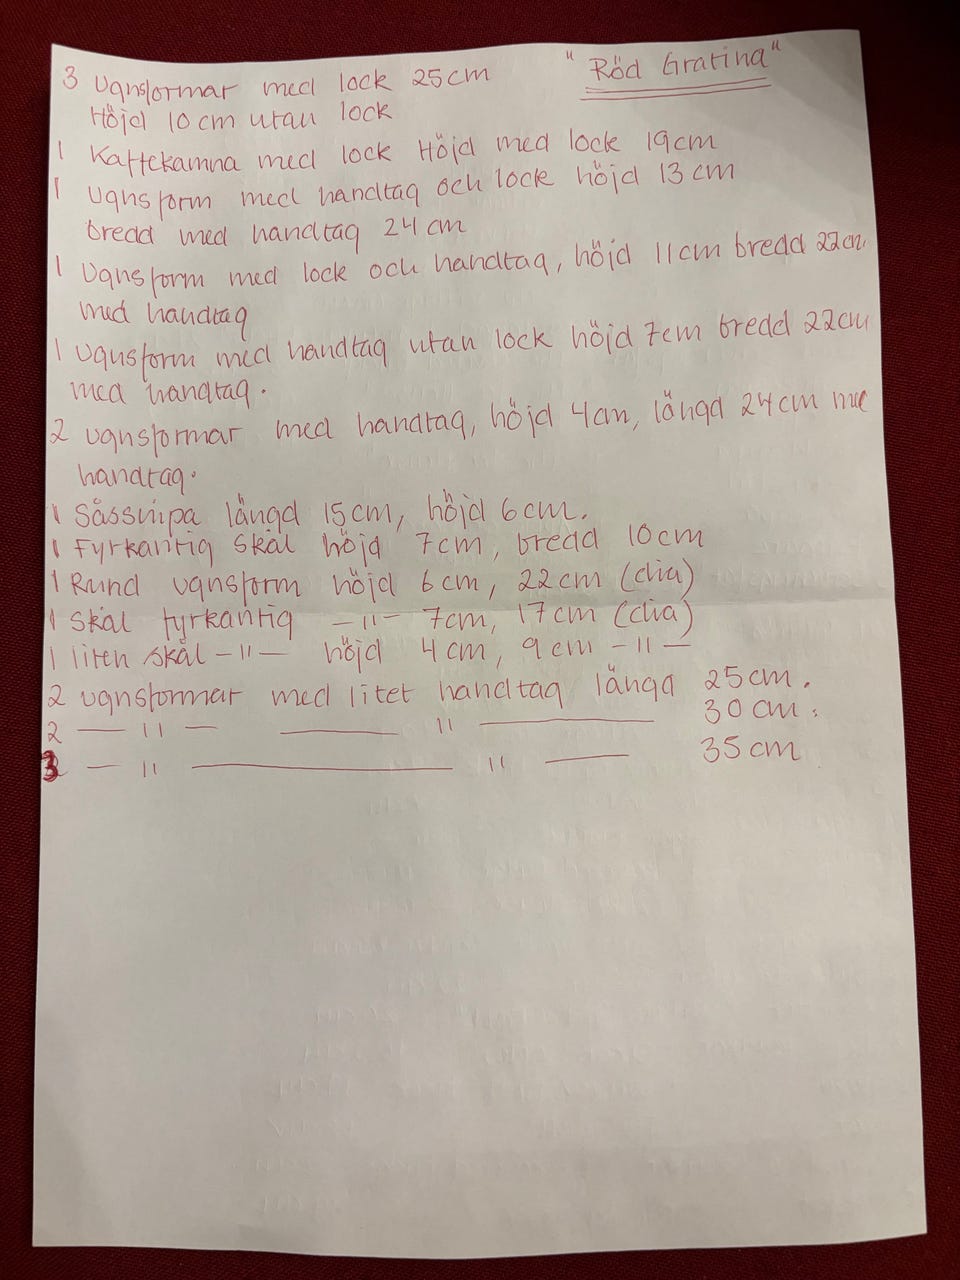 "Röd Gratina"
3 Ugnsformar med lock 25cm
Höjd 10cm utan lock
1 Kaffekanna med lock Höjd med lock 19cm
1 Ugnsform med handtag och lock höjd 13cm
bredd med handtag 24cm
1 Ugnsform med lock och handtag, höjd 11cm bredd 22cm
med handtag
1 ugnsform med handtag utan lock höjd 7cm bredd 22cm
med handtag.
2 ugnsformar med handtag, höjd 4cm, längd 24cm me
handtag.
1 Såssnipa längd 15cm, höjd 6cm.
1 Fyrkantig skål höjd 7cm, bredd 10cm
1 Rund ugnsform höjd 6cm, 22cm (dia)
1 Skål fyrkantig —"— 7cm, 17cm (dia)
1 liten skål —"— höjd 4cm, 9cm —"—
2 ugnsformar med litet handtag längd 25cm.
2 —"— — " — 30cm.
3 —"— — " — 35cm